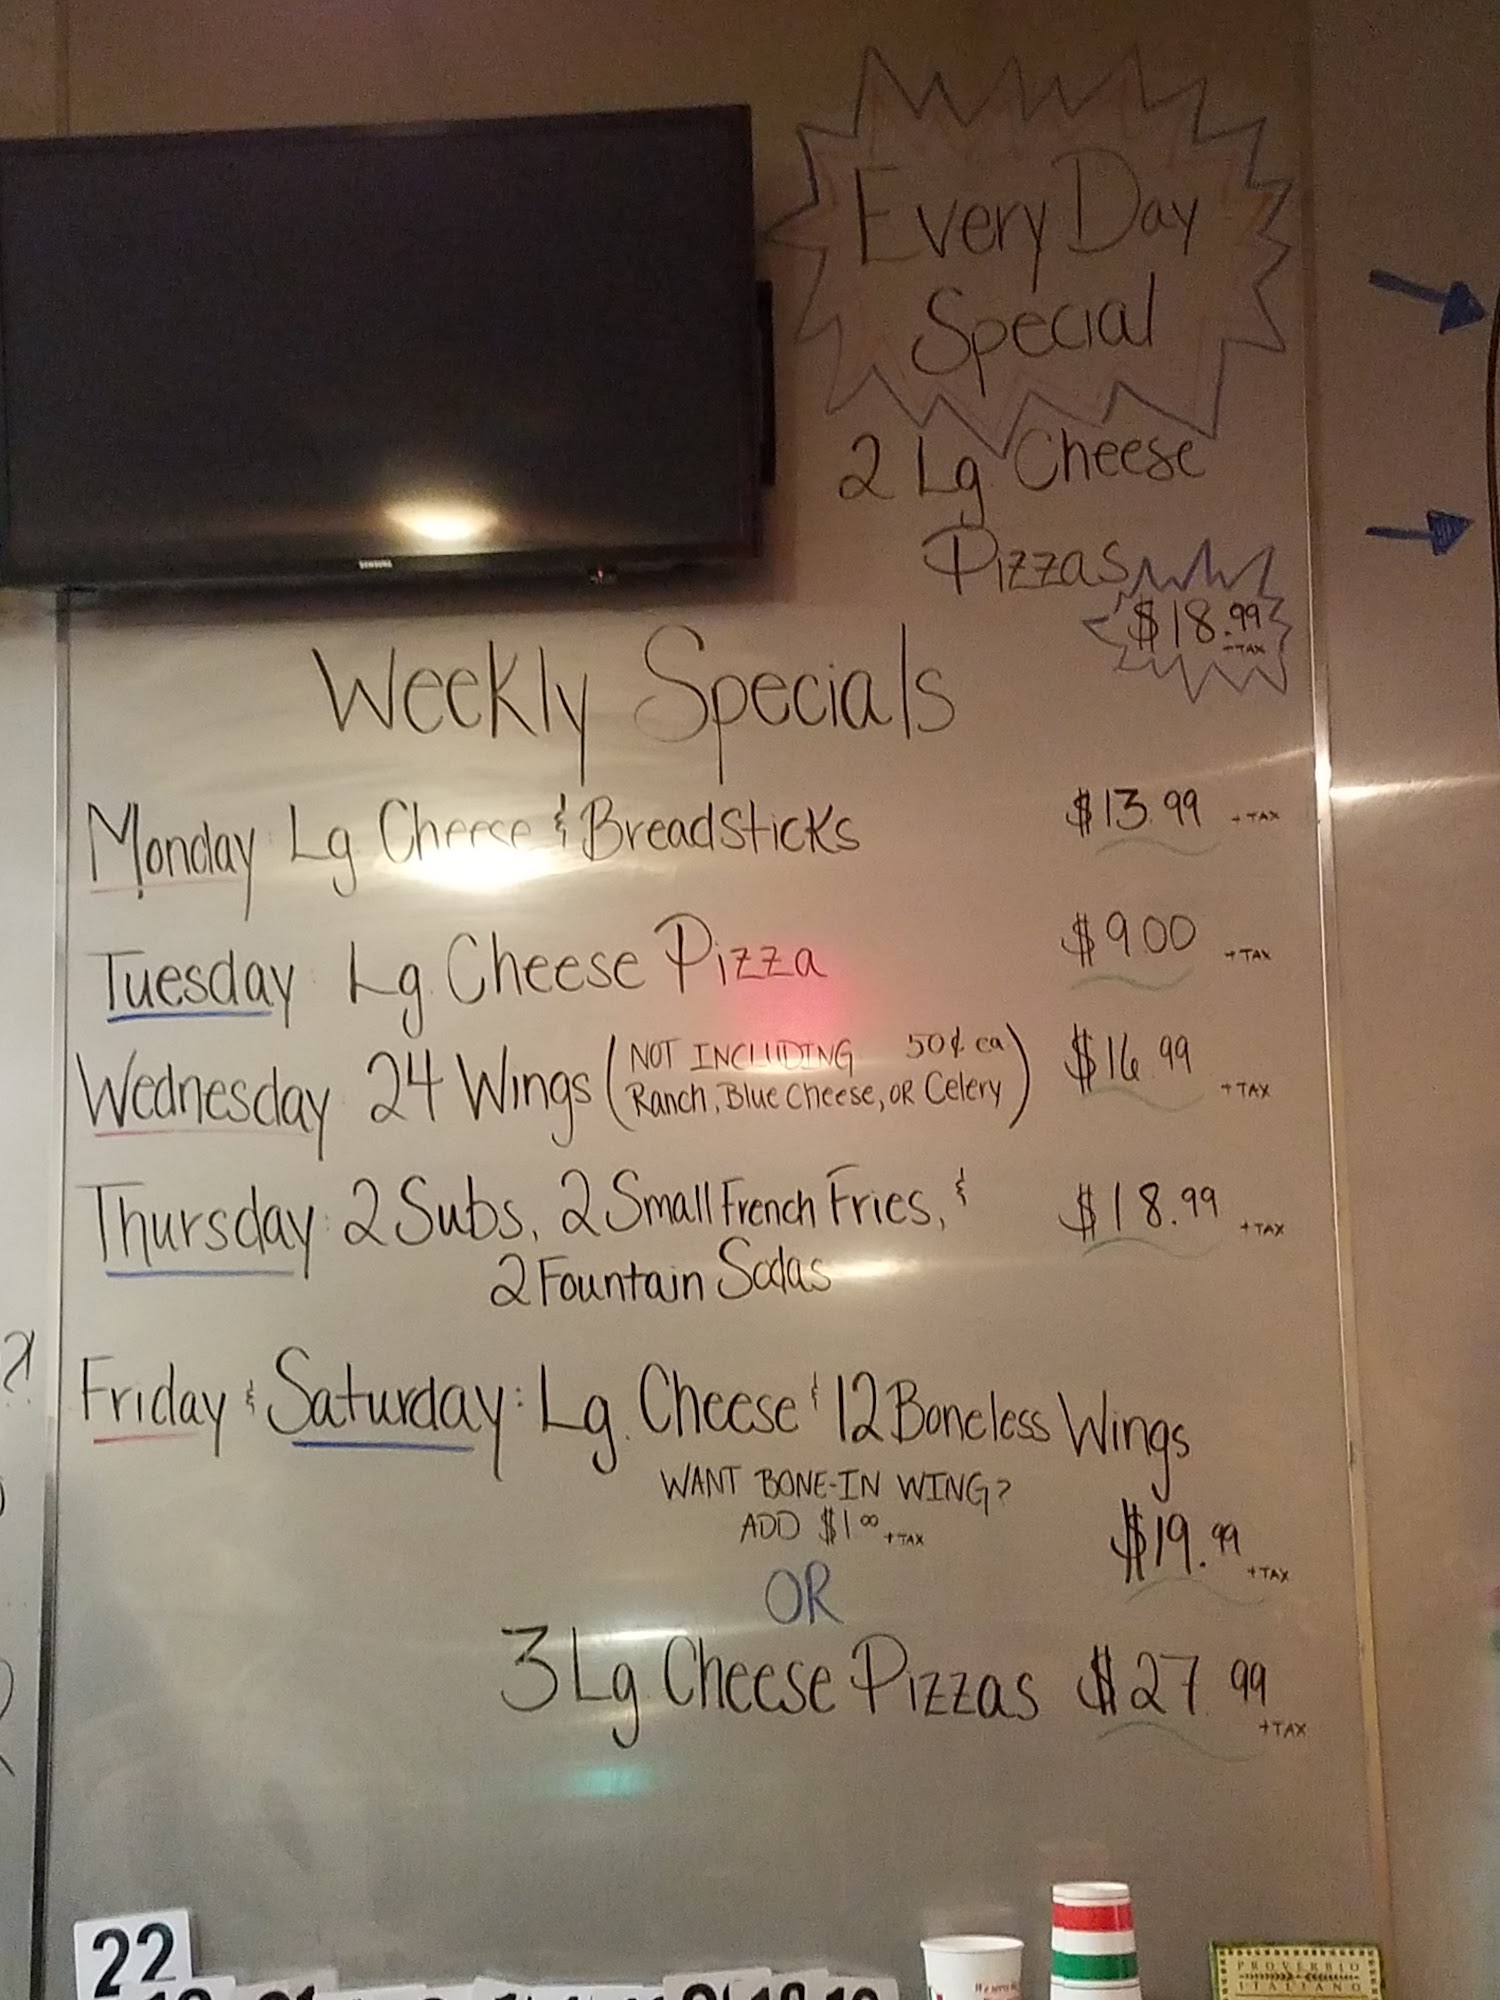 Every Day
Special
2 Lg Cheese
Pizzas
$18.99
+TAX
SAMSUNG
Weekly Specials
Monday: Lg Cheese & Breadsticks $13.99 +TAX
Tuesday: Lg. Cheese Pizza $9.00 +TAX
Wednesday 24 Wings (NOT INCLUDING 50¢ ea
Ranch, Blue Cheese, OR Celery) $16.99 +TAX
Thursday: 2 Subs, 2 Small French Fries, & $18.99 +TAX
2 Fountain Sodas
Friday & Saturday: Lg. Cheese & 12 Boneless Wings
WANT BONE-IN WING?
ADD $1.00 +TAX
$19.99 +TAX
OR
3 Lg. Cheese Pizzas $27.99
+TAX
22
PROVERBIO
ITALIANO